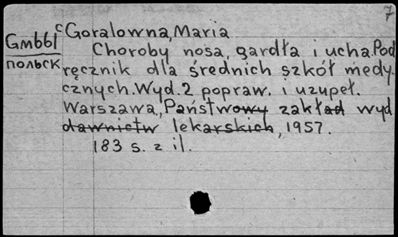 7
7
GмbbI c Goralowna, Maria
польск Choroby nosa, gardła i ucha. Pod
ręcznik dla średnich szkół medy
cznych. Wyd. 2 popraw. i uzupeł.
Warszawa, Państwowy zakład wyd
dawnictw lekarskich, 1957.
183 s. z il.